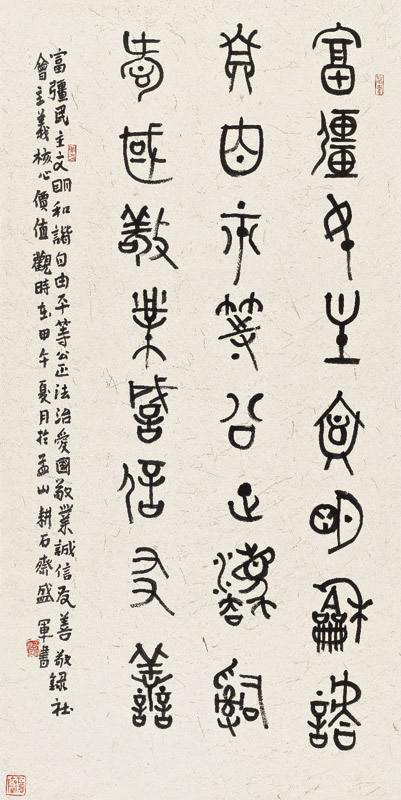 富彊民主文明龢諧
自由平等公正灋治
愛國敬業誠信友善
富彊民主文明和諧自由平等公正法治愛國敬業誠信友善敬錄社
會主義核心價值觀時在甲午夏月於孟山耕石齋盛軍書